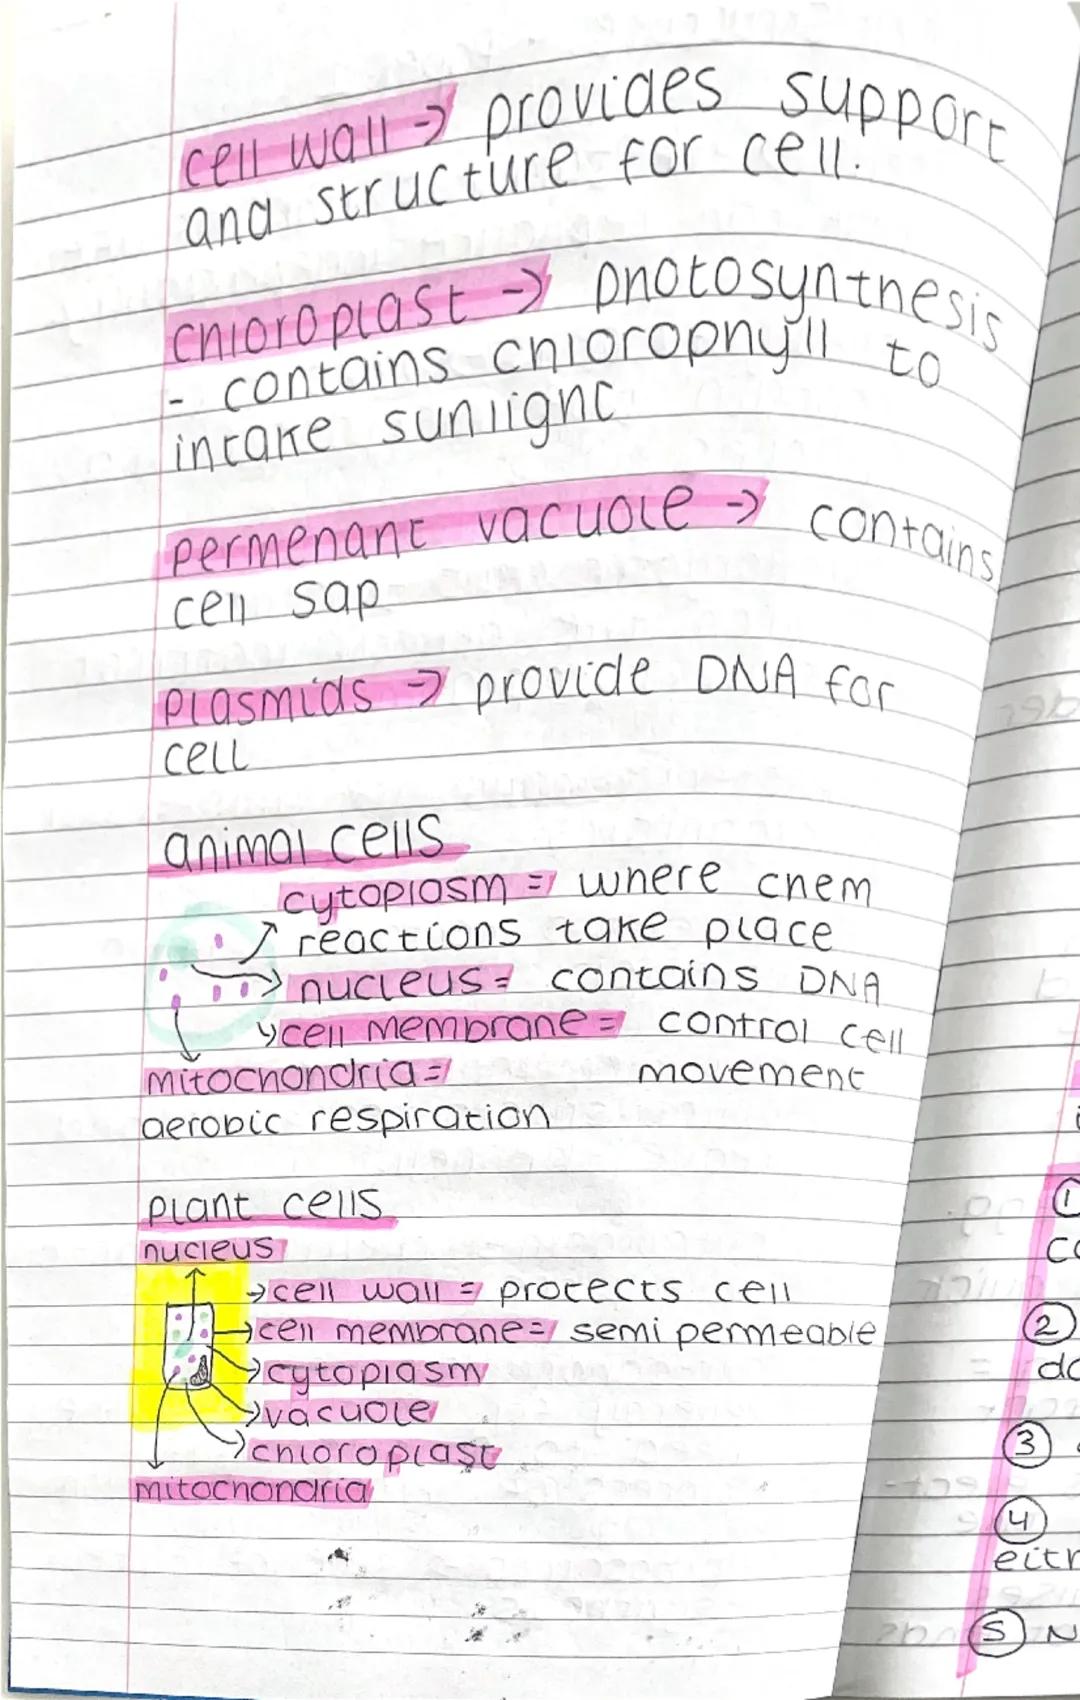 cell wall → provides support
and structure for cell.
chloroplast → photosynthesis
- contains chlorophyll to
intake sunlight
permenant vacuole → contains
cell sap
plasmids → provide DNA for
cell
animal cells
cytoplasm = where chem
reactions take place
nucleus = contains DNA
cell membrane = control cell
movement
mitochondria =
aerobic respiration
plant cells
nucleus
→ cell wall = protects cell
→ cell membrane = semi permeable
→ cytoplasm
→ vacuole
→ chloroplast
mitochondria
①
②
③
④
⑤ N